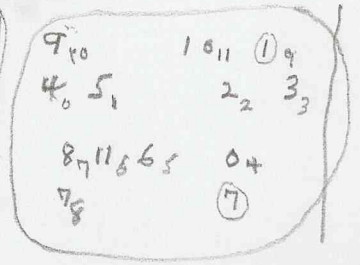 9 10 10 11 1 9
4 0 5 1 2 2 3 3
8 7 11 6 6 5 0 4
7 8 7